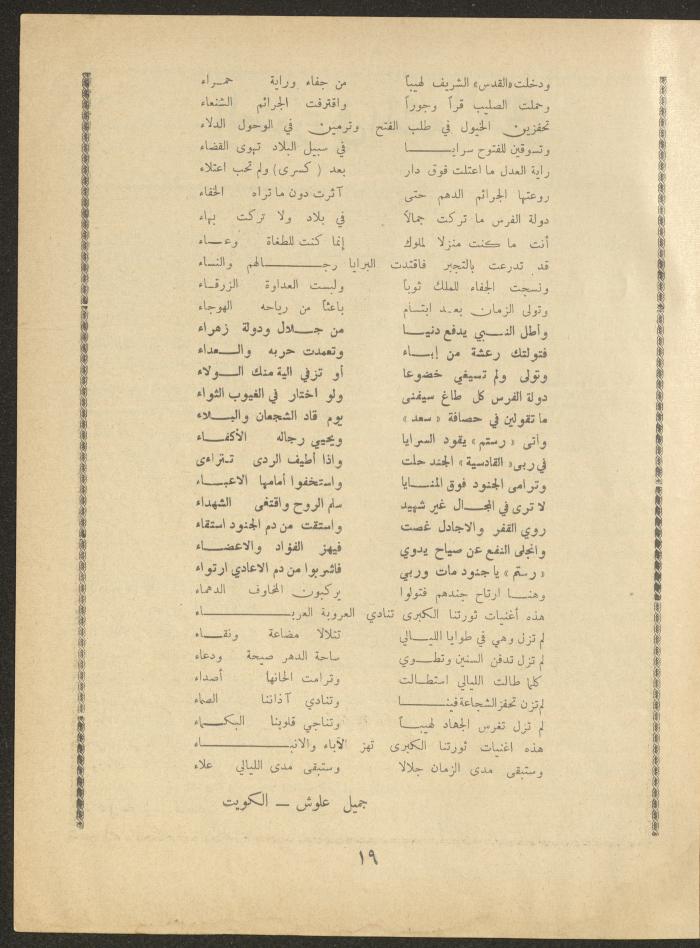 ودخلت «القدس» الشريف لهيباً من جفاء وراية حمراء
وحملت الصليب قراً وجوراً واقترفت الجرائم الشنعاء
تحفزين الخيول في طلب الفتح وترمين في الوحول الدلاء
وتسوقين للفتوح سرايا في سبيل البلاد تهوى القضاء
راية العدل ما اعتلت فوق دار بعد ( كسرى ) ولم تحب اعتلاء
روعتها الجرائم الدهم حتى آثرت دون ما تراه الخفاء
دولة الفرس ما تركت جمالاً في بلاد ولا تركت بهاء
أنت ما كنت منزلا لملوك إنما كنت للطغاة وعاء
قد تدرعت بالتجبر فاقتدت البرايا رجالهم والنساء
ونسجت الجفاء للملك ثوباً ولبست العداوة الزرقاء
وتولى الزمان بعد ابتسام باعثاً من رياحه الهوجاء
وأطل النبي يدفع دنيا من جلال ودولة زهراء
فتولتك رعشة من إباء وتعمدت حربه والعداء
وتولى ولم تسيغي خضوعا أو تزفي الية منك الولاء
دولة الفرس كل طاغ سيفنى ولو اختار في الغيوب الثواء
ما تقولين في حصافة « سعد » يوم قاد الشجعان والبلاء
واتى « رستم » يقود السرايا ويحيي رجاله الأكفاء
في ربى « القادسية » الجند حلت واذا أطيف الردى تتراءى
وترامى الجنود فوق المنايا واستخفوا أمامها الاعباء
لا ترى في المجال غير شهيد سلم الروح واقتفى الشهداء
روي القفر والاجادل غصت واستقت من دم الجنود استقاء
وانجلى النفع عن صياح يدوي فيهز الفؤاد والاعضاء
« رستم » يا جنود مات وربي فاشربوا من دم الاعادي ارتواء
وهنا ارتاح جندهم فتولوا يركبون المخاوف الدهماء
هذه أغنيات ثورتنا الكبرى تنادي العروبة العرباء
لم تزل وهي في طوايا الليالي تتلالا مضاعة ونقاء
لم تزل تدفن السنين وتطوي ساحة الدهر صيحة ودعاء
كلما طالت الليالي استطالت وترامت الحانها أصداء
لم تزن تحفز الشجاعة فينا وتنادي آذاننا الصماء
لم تزل تغرس الجهاد لهيباً وتناجي قلوبنا البكماء
هذه اغنيات ثورتنا الكبرى تهز الآباء والانباء
وستبقى مدى الزمان جلالا وستبقى مدى الليالي علاء
جميل علوش – الكويت
١٩